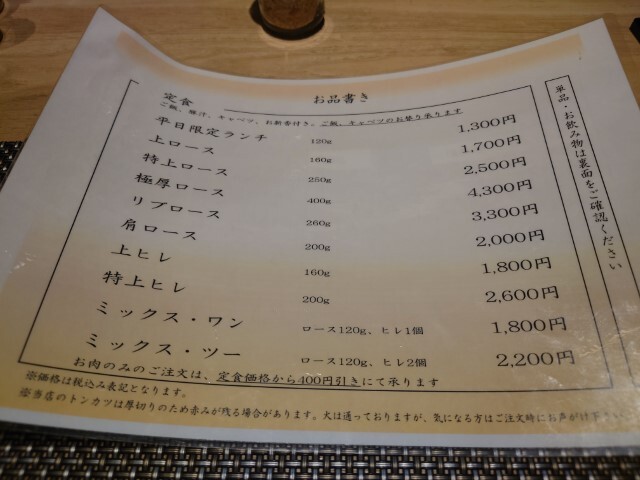 お品書き
定食
ご飯、豚汁、キャベツ、お新香付き。ご飯、キャベツのお替り承ります
平日限定ランチ 120g 1,300円
上ロース 160g 1,700円
特上ロース 250g 2,500円
極厚ロース 400g 4,300円
リブロース 260g 3,300円
肩ロース 200g 2,000円
上ヒレ 160g 1,800円
特上ヒレ 200g 2,600円
ミックス・ワン ロース120g、ヒレ1個 1,800円
ミックス・ツー ロース120g、ヒレ2個 2,200円
お肉のみのご注文は、定食価格から400円引きにて承ります
※価格は税込み表記となります。
※当店のトンカツは厚切りのため赤みが残る場合があります。火は通っておりますが、気になる方はご注文時にお声がけ下さい
単品・お飲み物は裏面をご確認ください